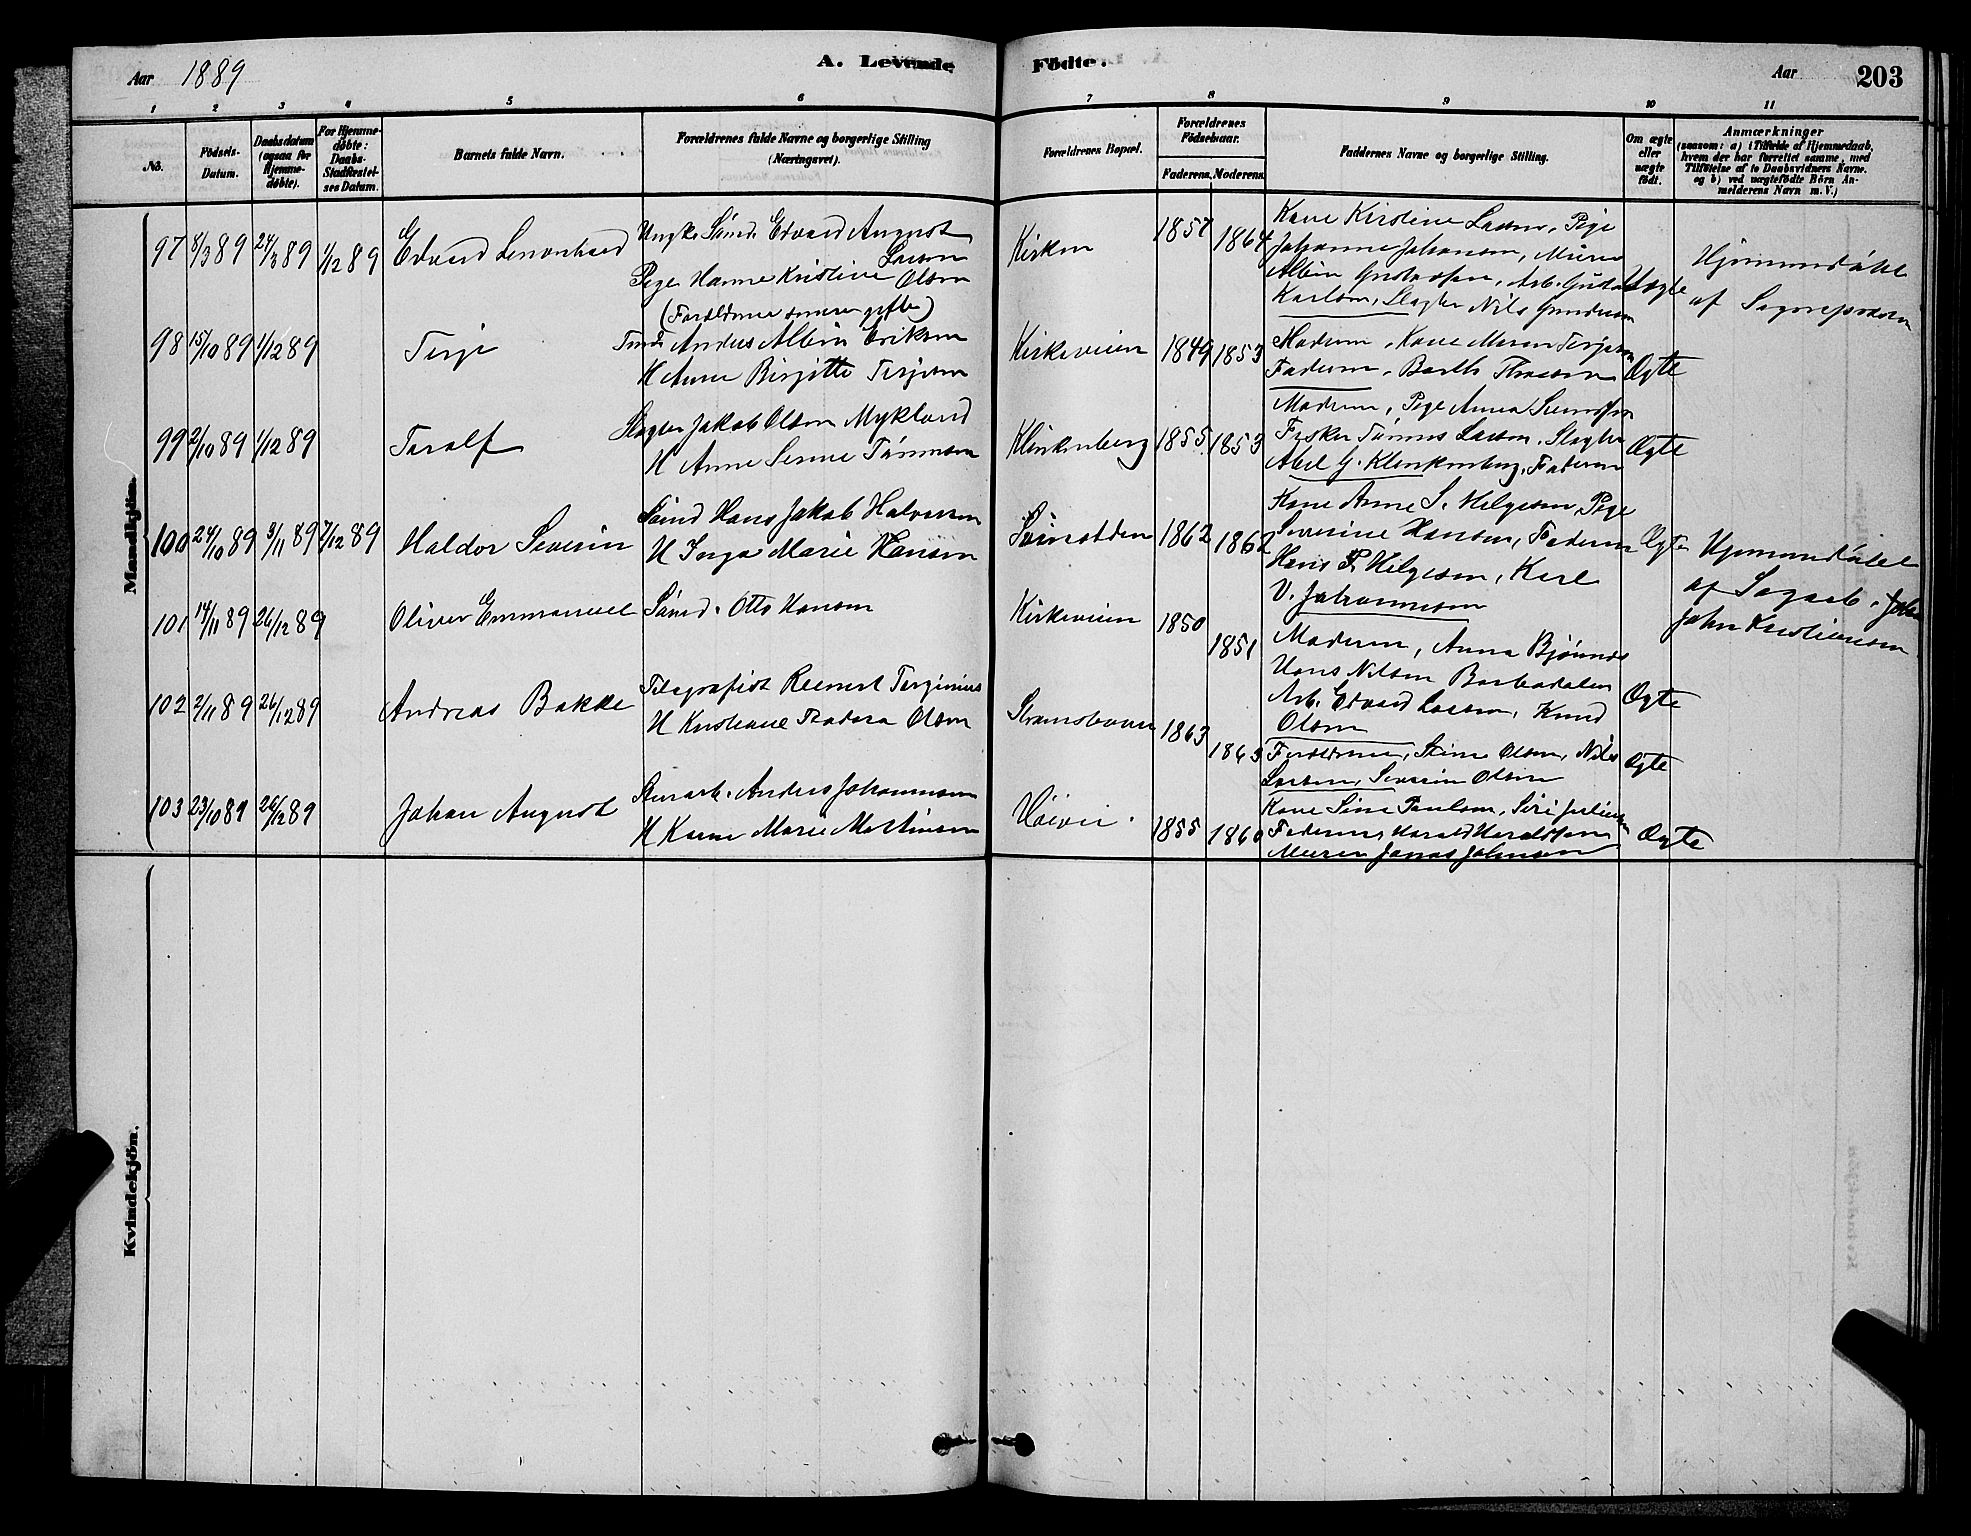 Aar 1889
A. Levende
Födte.
Aar
203
1 2 3 4 5 6 7 8 9 10 11
No.
Födsels-
Datum.
Daabsdatum
(ogsaa for
Hjemme-
døbte).
For Hjemme-
døbte:
Daabs-
Stadfæstel-
ses Datum.
Barnets fulde Navn.
Forældrenes fulde Navne og borgerlige Stilling
(Næringsvei).
Forældrenes Bopæl.
Forældrenes
Födselsaar.
Faderens. Moderens.
Faddernes Navne og borgerlige Stilling.
Om ægte
eller
uægte
födt.
Anmærkninger
(saasom: a) i Tilfælde af Hjemmedaab,
hvem der har forrettet samme, med
Tilföielse af to Daabsvidners Navne.
og b) ved uægtefödte Börn An-
melderens Navn m. V.)
Mandkjön.
97 8/3 89 24/3 89 1/12 89 Edvard Lenonhard
Ungk. Sømd. Edvard August
Larsen
Pige Hanne Kristine Olsen
(Forældrene senere gifte)
Kirken 1857 1864
Kone Kirstine Larsen, Pige
Johanne Johansen, Murer
Albin Gustavsen, Arb. Gustav
Karlsen, Slagter Nils Gundersen
Uægte
Hjemmedøbt
af Sognepræsten
98 15/10 89 1/12 89 Terje
Tømd. Anders Albin Eriksen
H Anne Birgitte Terjesen
Kirkeveien 1849 1853
Moderen, Kone Maren Terjesen
Faderen, Barth Thorsen
Ægte
99 2/10 89 1/12 89 Taralf
Slagter Jakob Olsen Mykland
H Anne Serine Tønnesen
Klinkenberg 1855 1853
Moderen, Pige Anna Svendsen
Fisker Tønnes Larsen, Slagter
Abel G. Klinkenberg, Faderen
Ægte
100 24/10 89 3/11 89 7/12 89 Haldor Severin
Sømd Hans Jakob Halvorsen
H Inga Marie Hansen
Svinodden 1862 1862
Kone Anne S. Helgesen, Pige
Severine Hansen, Faderen
Hans P. Helgesen, Karl
V. Johannesen
Ægte
Hjemmedøbt
af Sagarb. John
John Kristiansen
101 14/11 89 26/12 89 Oliver Emmanuel
Sømd. Otto Hansen
Kirkeveien 1850 1851
Moderen, Anna Bjørnnes
Hans Nilsen Barbodalen
Arb. Edvard Larsen, Knud
Olsen
Ægte
102 2/11 89 26/12 89 Andreas Bakke
Telegrafist Reinert Terginius
H Kristiane Teodora Olsen
Strømsbuen 1863 1863
Forældrene, Stine Olsen, Nils
Larsen, Severin Olsen
Ægte
103 23/10 89 26/12 89 Johan August
Stenarb. Anders Johannesen
H Karen Marie Martinsen
Høivei 1855 1860
Kone Sina Paulsen, Siri
Faderen, Harald Haraldsen
Murer Jonas Johnsen
Ægte
Kvindekjön.